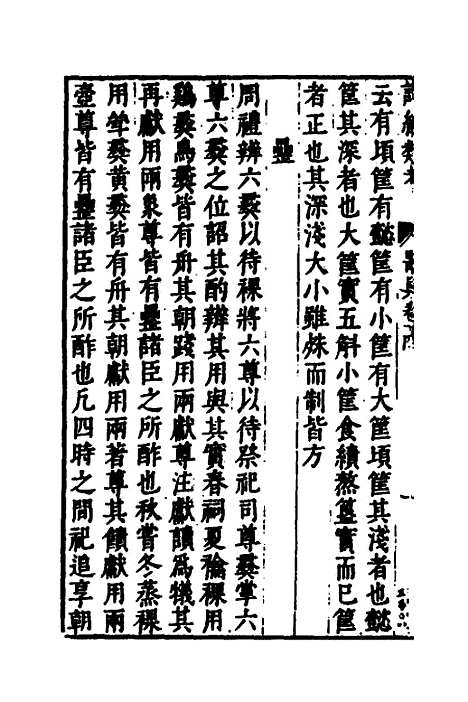 云有頃筐有懿筐有小筐有大筐頃筐其淺者也懿
筐其深者也大筐實五斛小筐食績熬筥實而已筐
者正也其深淺大小雖殊而制皆方
罍
周禮辨六彝以待祼將六尊以待祭祀司尊彝掌六
尊六彝之位詔其酌辨其用與其實春祠夏禴祼用
鷄彝鳥彝皆有舟其朝踐用兩獻尊注獻讀為犧其
再獻用兩象尊皆有罍諸臣之所酢也秋嘗冬蒸祼
用斝彝黃彝皆有舟其朝獻用兩著尊其饋獻用兩
壺尊皆有罍諸臣之所酢也凡四時之間祀追享朝